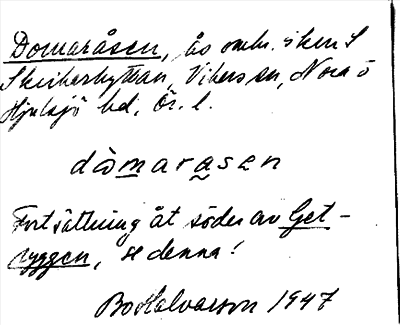 Domaråsen, ås omkr. i ken S
Skrikarhyttan, Vikers sn, Nora o
Hjulsjö bd, Ör. l.
dòmarasen
Fortsättning åt söder av Get-
ryggen, se denna!
Bo Halvarson 1947